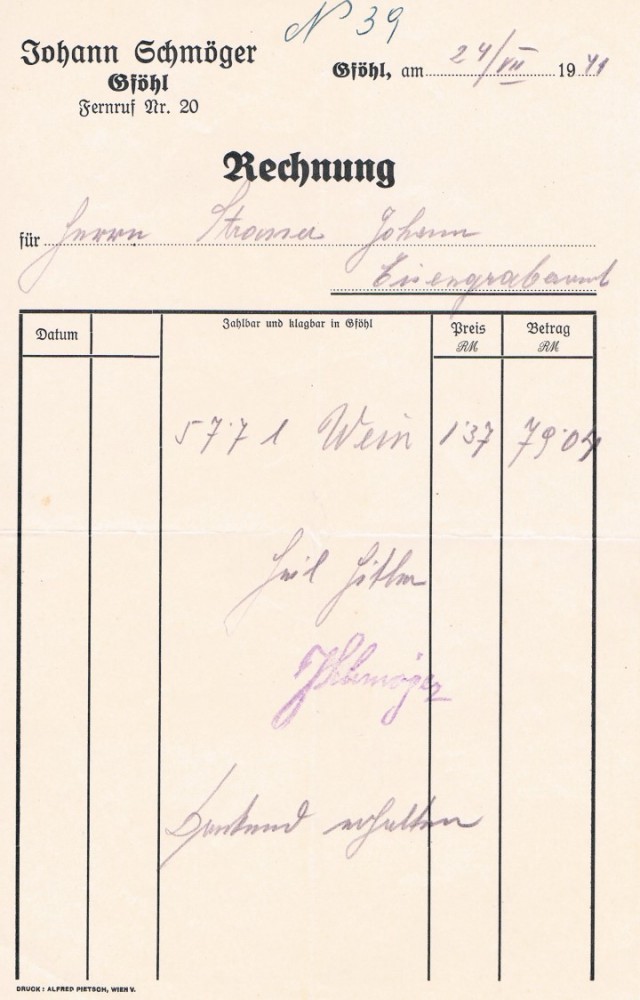 N° 39
Johann Schmöger
Gföhl
Fernruf Nr. 20
Gföhl, am 24/VII 1941
Rechnung
für Herrn Strasser Johann
Eisengrabenamt
Datum
Zahlbar und klagbar in Gföhl
Preis RM
Betrag RM
57·7 l Wein 1·37 79·04
Heil Hitler
JSchmöger
Dankend erhalten
DRUCK: ALFRED PIETSCH, WIEN V.